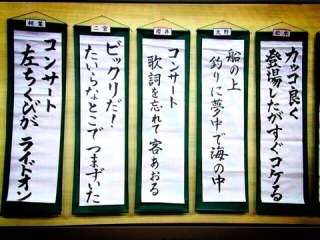 松本
カッコ良く
登場したがすぐコケる
大野
船の上
釣りに夢中で海の中
櫻井
コンサート
歌詞を忘れて客あおる
二宮
ビックリだ!
たいらなとこでつまずいた
相葉
コンサート
左ちくびがライドオン